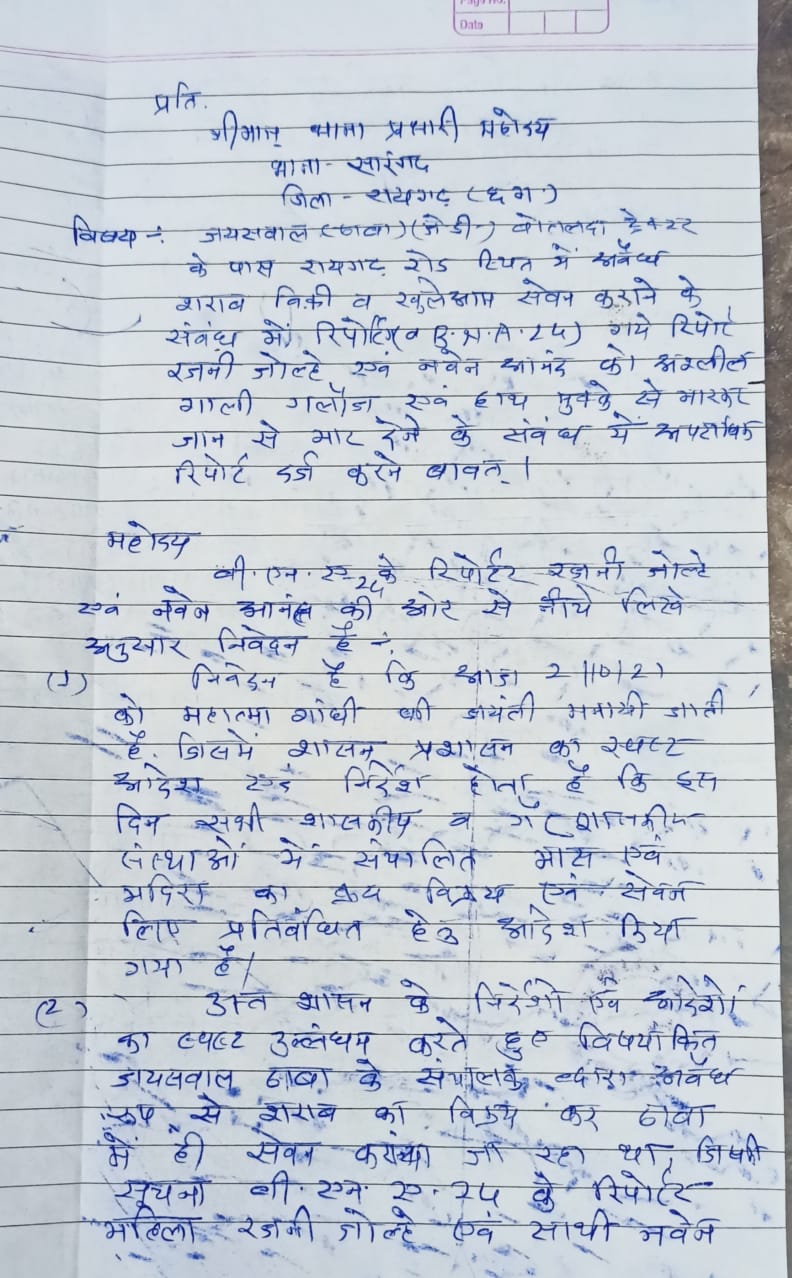 Page No.
Date
प्रति.
श्रीमान् थाना प्रभारी महोदय
थाना - सारंगढ
जिला - रायगढ़ (छ ग.)
विषय :- जयसवाल (ढाबा) (जे डी) बोतलदा
के पास रायगढ़ रोड स्थित में अवैध्य
शराब बिक्री व खुलेआम सेवन कराने के
संबंध में रिपोर्टिंग (व B.N.A.24) गये रिपोर्टर
रजनी जोल्हे एवं नवेन आनंद को अश्लील
गाली गलौज एवं हाथ मुक्के से मारकर
जान से मार देने के संबंध में अपराधिक
रिपोर्ट दर्ज करने बावत् ।
महोदय
बी.एन.ए 24 के रिपोर्टर रजनी जोल्हे
एवं नवेन आनंद की ओर से नीचे लिखे
अनुसार निवेदन है :-
(1) निवेदन है कि आज 2/10/21
को महात्मा गांधी की जयंती मनायी जाती
है. जिसमें शासन प्रशासन का स्पष्ट
आदेश एवं निर्देश होता है कि इस
दिन सभी शासकीय व गैर शासकीय
संस्थाओं में संचालित मास एवं
मदिरा का क्रय विक्रय एवं सेवन
लिए प्रतिबंधित हेतु आदेश किया
गया है।
(2) उक्त शासन के निर्देशों एवं आदेशों
का स्पष्ट उल्लंघन करते हुए विषयांकित
जायसवाल ढाबा के संचालक द्वारा अवैध
रूप से शराब का विक्रय कर ढाबा
में ही सेवन कराया जा रहा था, जिसकी
सूचना बी.एन.ए.24 के रिपोर्टर
महिला रजनी जोल्हे एवं साथी नवेन